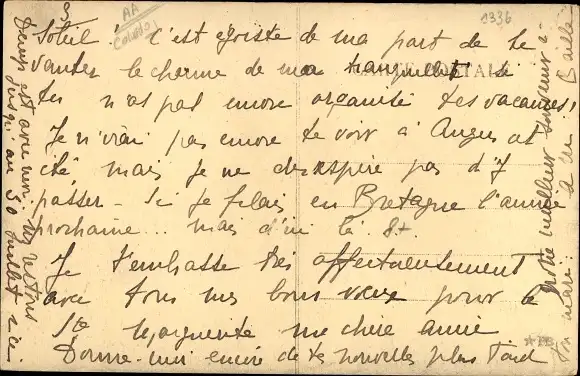 3
AA
1336
CARTE POSTALE
Soleil. C'est égoïste de ma part de te
vanter le charme de ma tranquillité si
tu n'as pas encore organisé tes vacances,
Je n'irai pas encore te voir à Angers cet
été mais je ne désespère pas d'y
passer - Si je filais en Bretagne l'année
prochaine... mais d'ici là. 8+
Je t'embrasse très affectueusement
avec tous mes bons vœux pour la
Ste Marguerite ma chère amie
Donne-moi encore de tes nouvelles plus tard
est avec moi
jusqu'au 30 juillet
meilleur souvenir à
ton mari